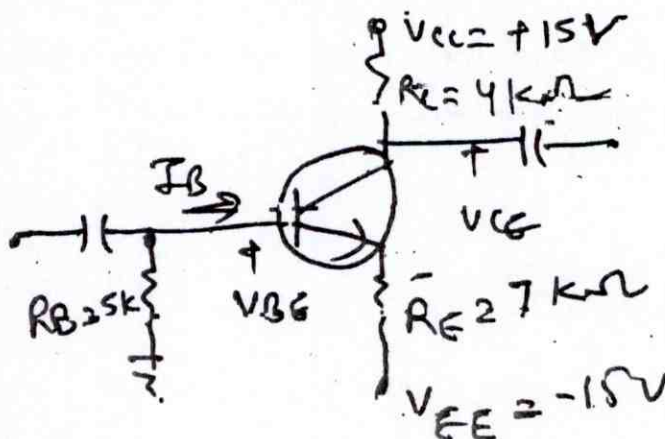 VCC = +15V
RC = 4 KΩ
IB
+
+
VCE
RB = 5K
VBE
-
RE = 7 KΩ
VEE = -15V